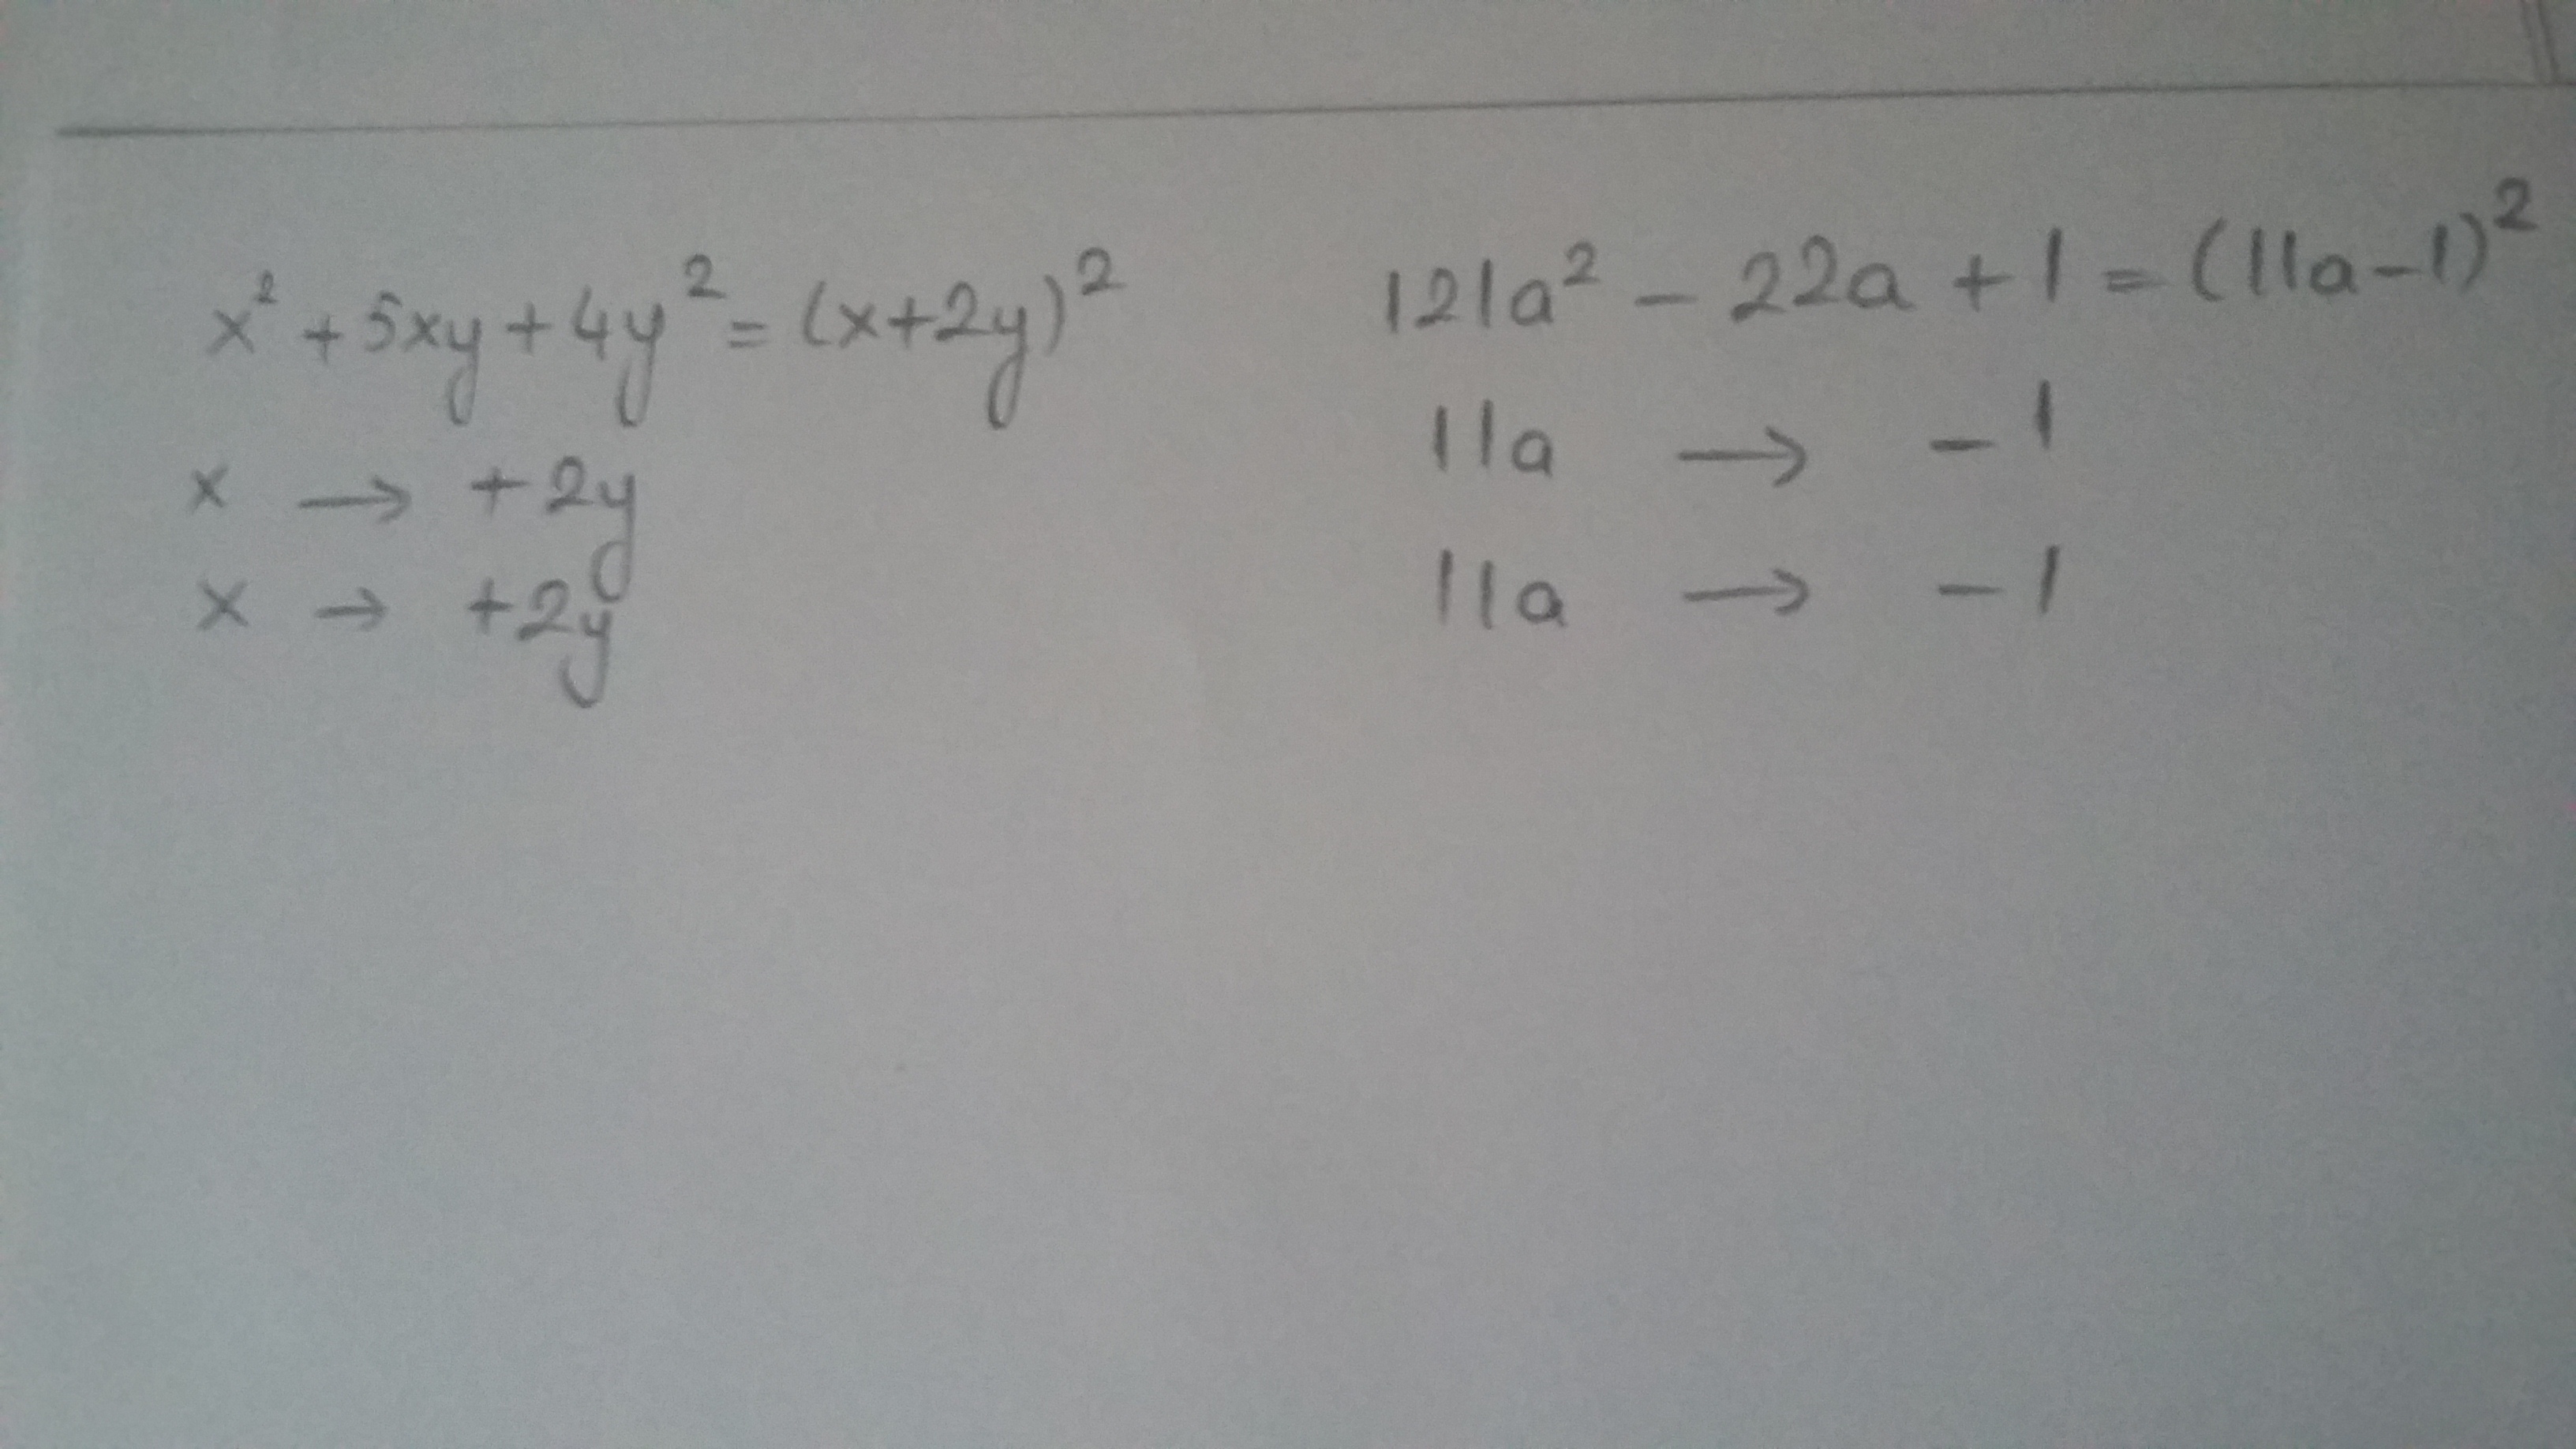 x² + 5xy + 4y² = (x+2y)²
x → +2y
x → +2y
121a² - 22a + 1 = (11a-1)²
11a → -1
11a → -1